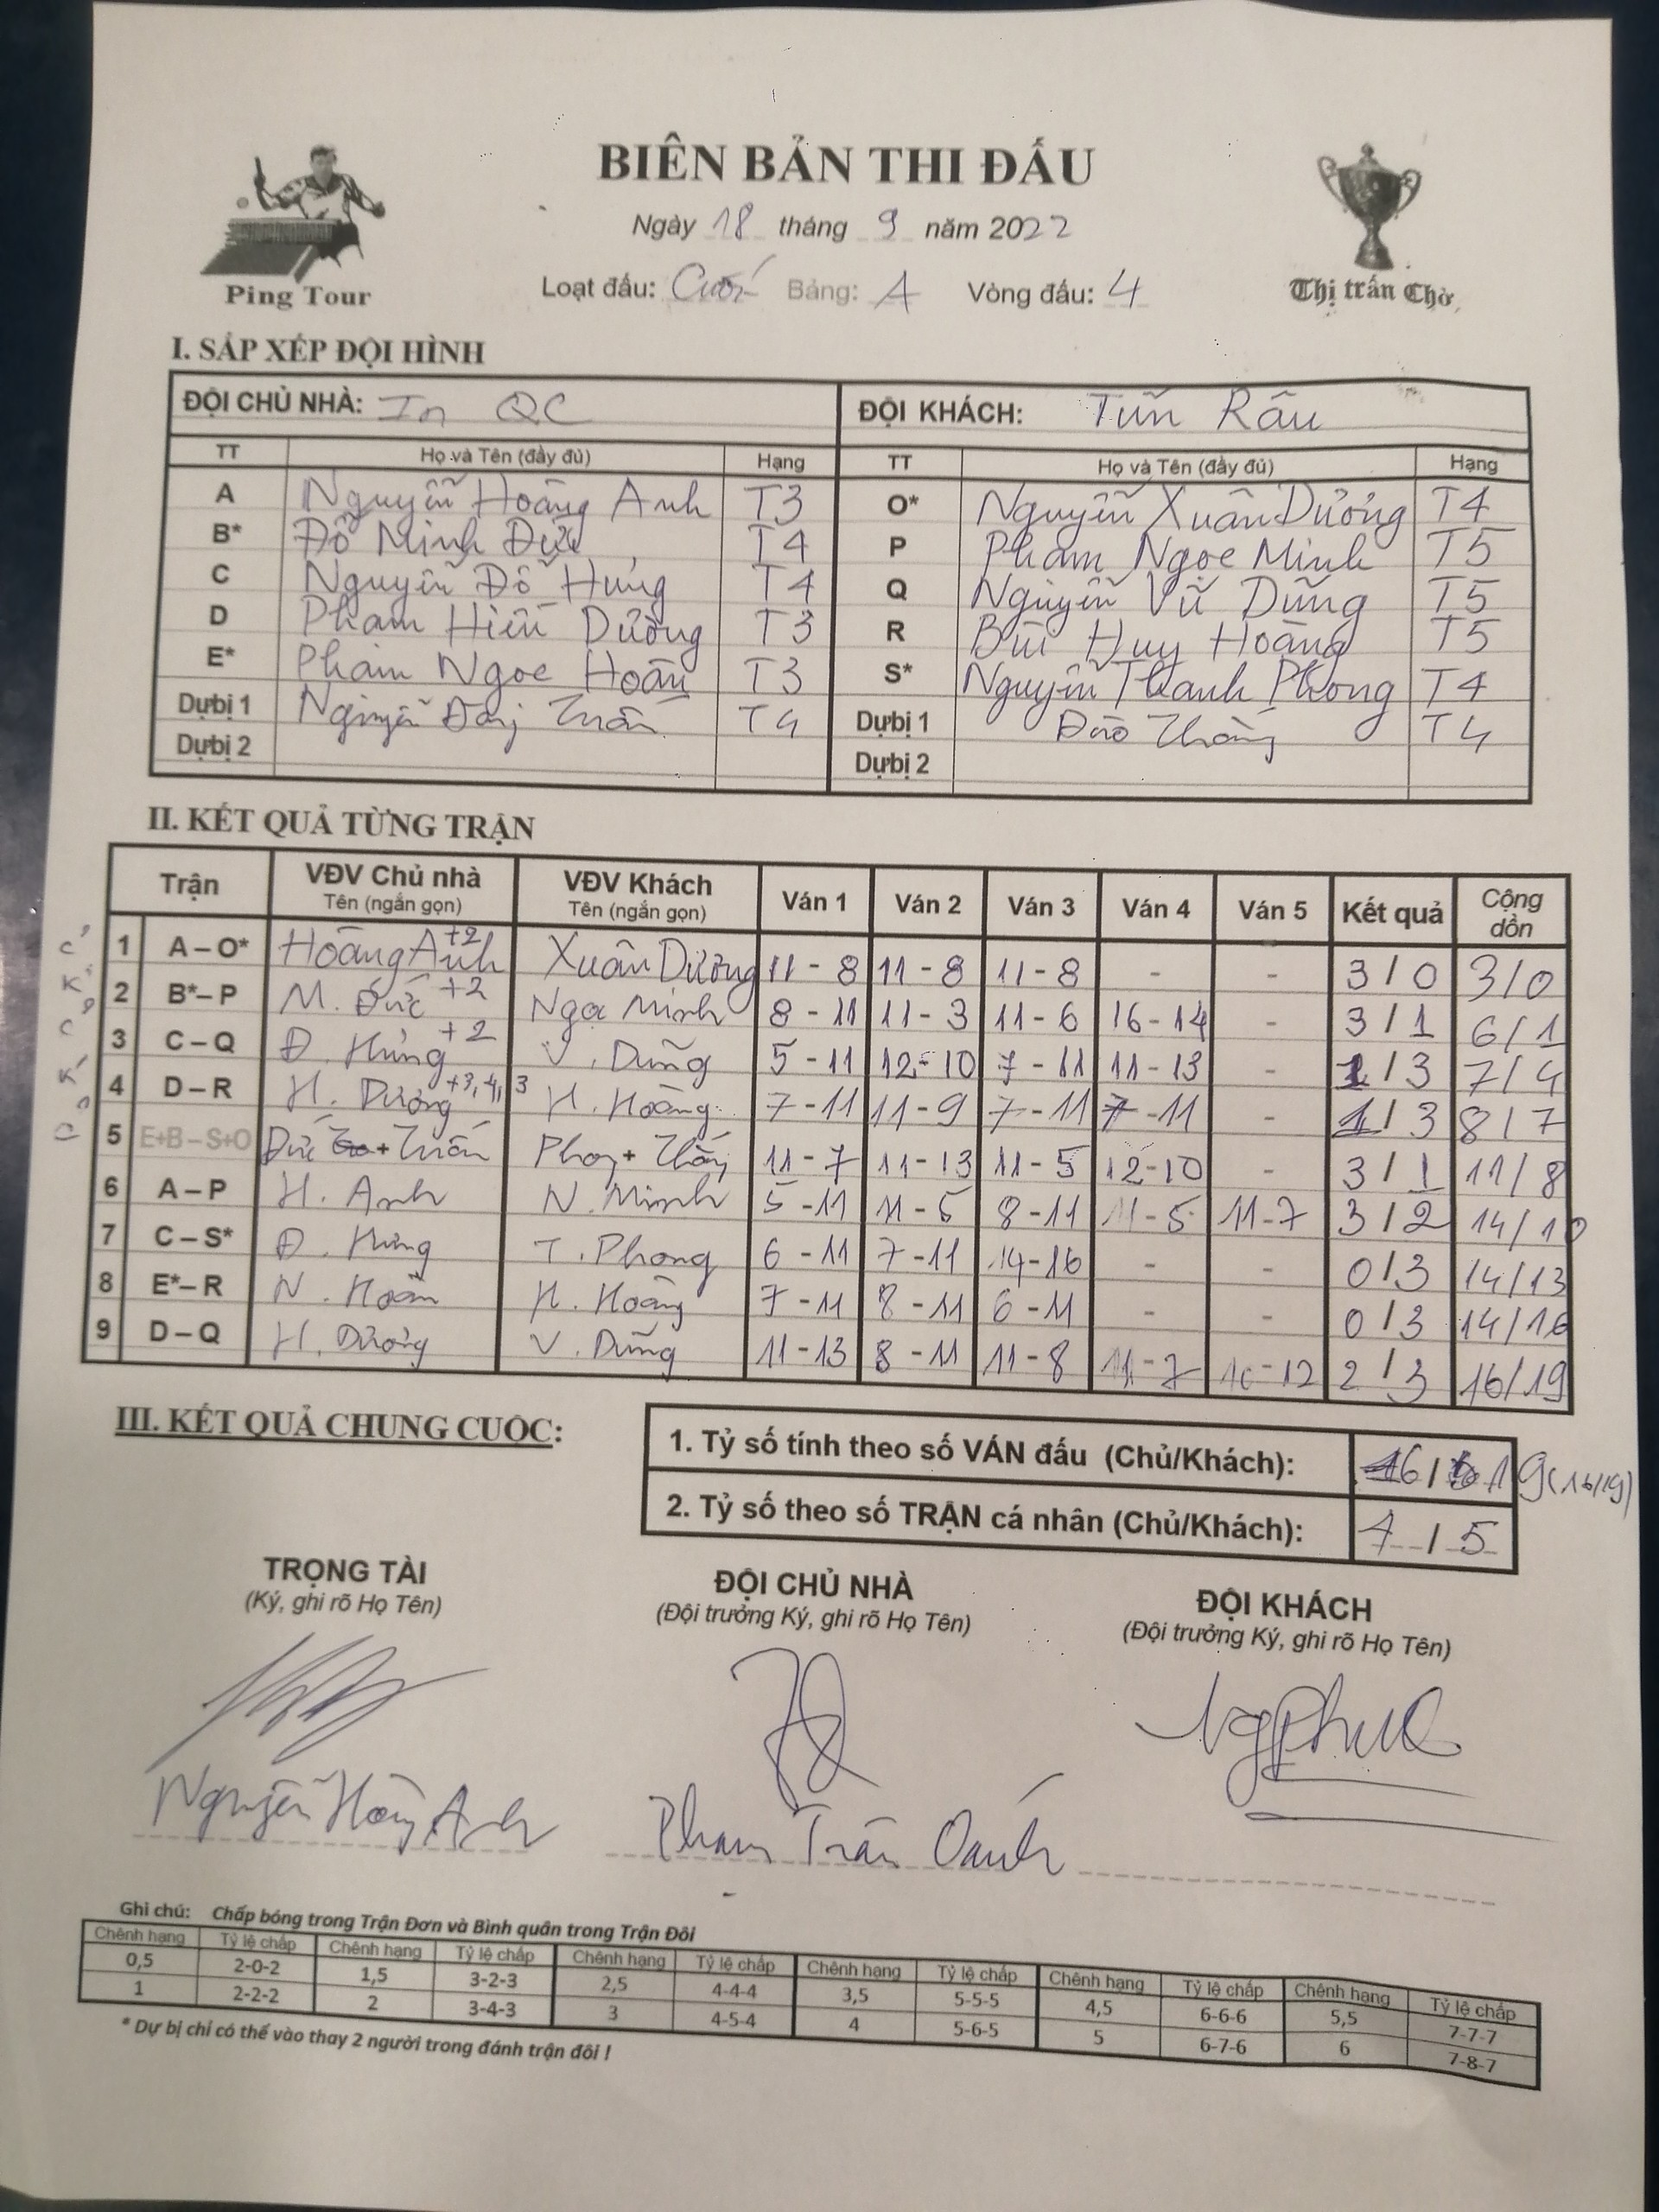 BIÊN BẢN THI ĐẤU
Ngày 18 tháng 9 năm 2022
Ping Tour
Loạt đấu: Cuối Bảng: A Vòng đấu: 4
Thị trấn Chờ
I. SẮP XẾP ĐỘI HÌNH
ĐỘI CHỦ NHÀ: In QC ĐỘI KHÁCH: Tuấn Râu
TT Họ và Tên (đầy đủ) Hạng TT Họ và Tên (đầy đủ) Hạng
A Nguyễn Hoàng Anh T3 O* Nguyễn Xuân Dương T4
B* Đỗ Minh Đức T4 P Phạm Ngọc Minh T5
C Nguyễn Đỗ Hưng T4 Q Nguyễn Vũ Dũng T5
D Phạm Hiến Dương T3 R Bùi Huy Hoàng T5
E* Phạm Ngọc Hoàn T3 S* Nguyễn Thanh Phong T4
Dự bị 1 Nguyễn Tuấn T4 Dự bị 1 Đào Thắng T4
Dự bị 2 Dự bị 2
II. KẾT QUẢ TỪNG TRẬN
Trận VĐV Chủ nhà Tên (ngắn gọn) VĐV Khách Tên (ngắn gọn) Ván 1 Ván 2 Ván 3 Ván 4 Ván 5 Kết quả Cộng dồn
1 A – O* Hoàng Anh +2 Xuân Dương 11 - 8 11 - 8 11 - 8 - - 3 / 0 3/0
2 B* – P M. Đức +2 Ngọc Minh 8 - 11 11 - 3 11 - 6 16 - 14 - 3 / 1 6/1
3 C – Q Đ. Hưng +2 V. Dũng 5 - 11 12 - 10 7 - 11 11 - 13 - 1 / 3 7/4
4 D – R H. Dương +3,4,3 H. Hoàng 7 - 11 11 - 9 7 - 11 7 - 11 - 1 / 3 8/7
5 E+B – S+O Đức + Tuấn Phong + Thắng 11 - 7 11 - 13 11 - 5 12 - 10 - 3 / 1 11/8
6 A – P H. Anh N. Minh 5 - 11 11 - 5 8 - 11 11 - 5 11 - 7 3 / 2 14/10
7 C – S* Đ. Hưng T. Phong 6 - 11 7 - 11 14 - 16 - - 0 / 3 14/13
8 E* – R N. Hoàn H. Hoàng 7 - 11 8 - 11 6 - 11 - - 0 / 3 14/16
9 D – Q H. Dương V. Dũng 11 - 13 8 - 11 11 - 8 11 - 7 10 - 12 2 / 3 16/19
III. KẾT QUẢ CHUNG CUỘC:
1. Tỷ số tính theo số VÁN đấu (Chủ/Khách): 16 / 19 (16/19)
2. Tỷ số theo số TRẬN cá nhân (Chủ/Khách): 4 / 5
TRỌNG TÀI ĐỘI CHỦ NHÀ ĐỘI KHÁCH
(Ký, ghi rõ Họ Tên) (Đội trưởng Ký, ghi rõ Họ Tên) (Đội trưởng Ký, ghi rõ Họ Tên)
Nguyễn Hoàng Anh Phạm Trần Oanh
Ghi chú: Chấp bóng trong Trận Đơn và Bình quân trong Trận Đôi
Chênh hạng Tỷ lệ chấp Chênh hạng Tỷ lệ chấp Chênh hạng Tỷ lệ chấp Chênh hạng Tỷ lệ chấp Chênh hạng Tỷ lệ chấp Chênh hạng Tỷ lệ chấp
0,5 2-0-2 1,5 3-2-3 2,5 4-4-4 3,5 5-5-5 4,5 6-6-6 5,5 7-7-7
1 2-2-2 2 3-4-3 3 4-5-4 4 5-6-5 5 6-7-6 6 7-8-7
* Dự bị chỉ có thể vào thay 2 người trong đánh trận đôi !